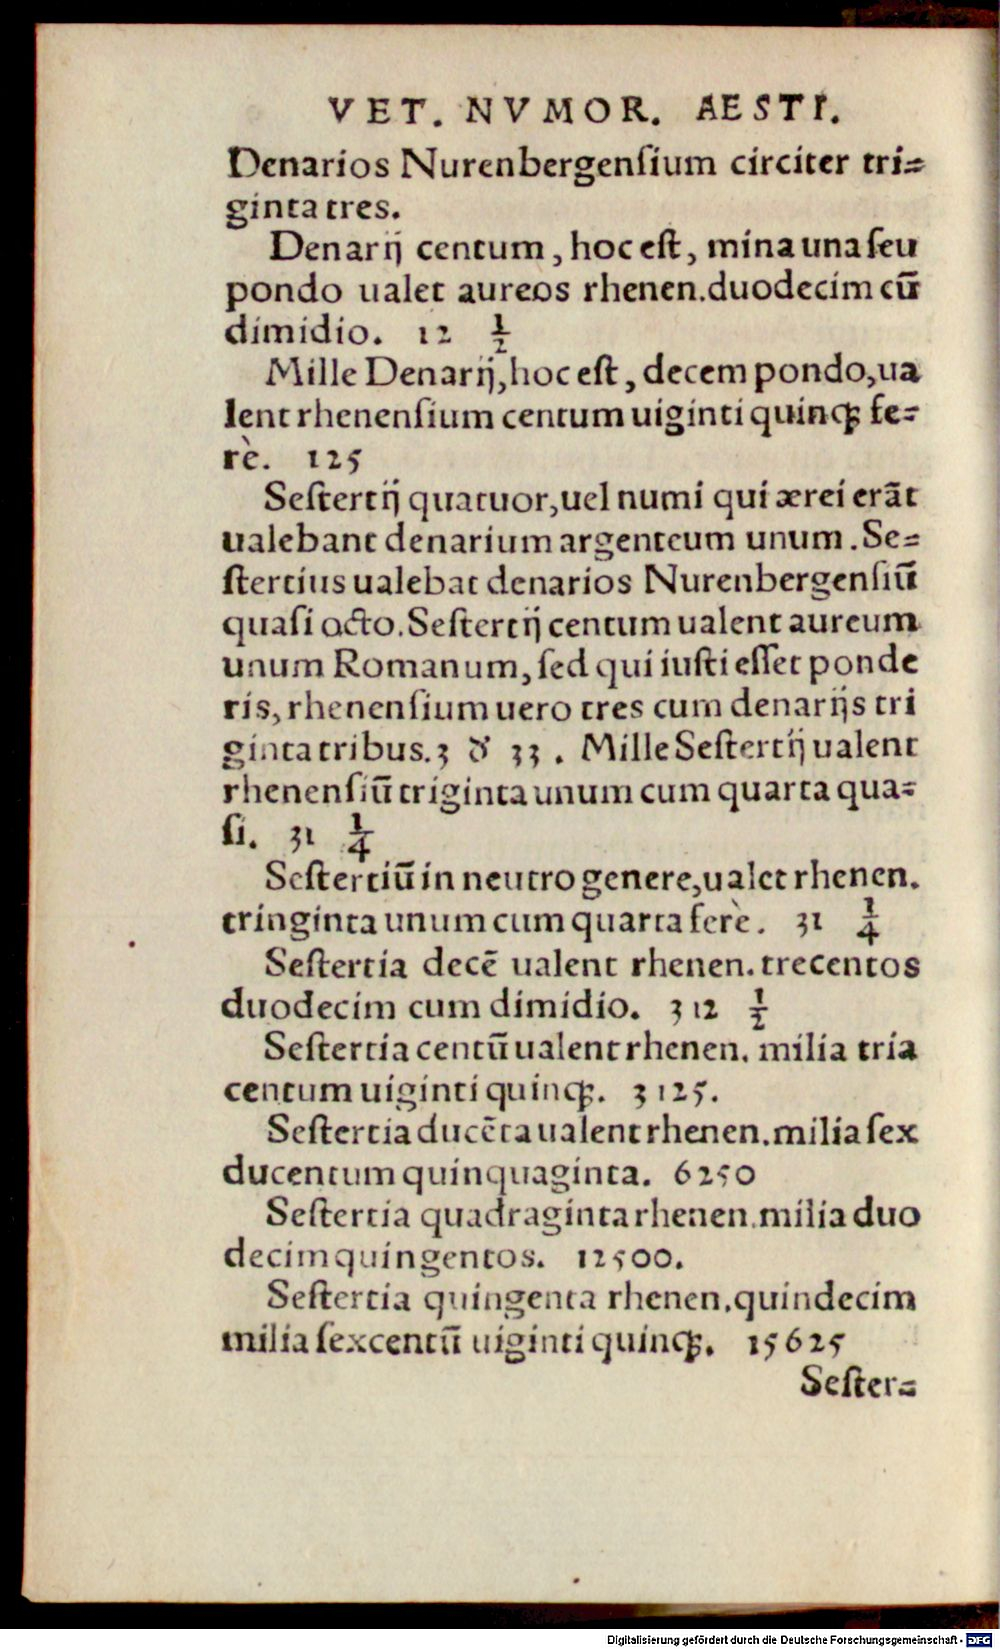 VET. NVMOR. AESTI.
Denarios Nurenbergenſium circiter tri⸗
ginta tres.
Denarij centum, hoc eſt, mina una ſeu
pondo ualet aureos rhenen. duodecim cū
dimidio. 12 1/2
Mille Denarij, hoc eſt, decem pondo, ua
lent rhenenſium centum uiginti quinqꝫ fe⸗
rè. 125
Seſtertij quatuor, uel numi qui ærei erāt
ualebant denarium argenteum unum. Se⸗
ſtertius ualebat denarios Nurenbergenſiū
quaſi octo. Seſtertij centum ualent aureum
unum Romanum, ſed qui iuſti eſſet ponde
ris, rhenenſium uero tres cum denarijs tri
ginta tribus. 3 ₰ 33. Mille Seſtertij ualent
rhenenſiū triginta unum cum quarta qua⸗
ſi. 31 1/4
Seſtertiū in neutro genere, ualet rhenen.
tringinta unum cum quarta ferè. 31 1/4
Seſtertia decē ualent rhenen. trecentos
duodecim cum dimidio. 312 1/2
Seſtertia centū ualent rhenen. milia tria
centum uiginti quinqꝫ. 3125.
Seſtertia ducēta ualent rhenen. milia ſex
ducentum quinquaginta. 6250
Seſtertia quadraginta rhenen. milia duo
decim quingentos. 12500.
Seſtertia quingenta rhenen. quindecim
milia ſexcentū uiginti quinqꝫ. 15625
Seſter⸗
Digitalisierung gefördert durch die Deutsche Forschungsgemeinschaft - DFG